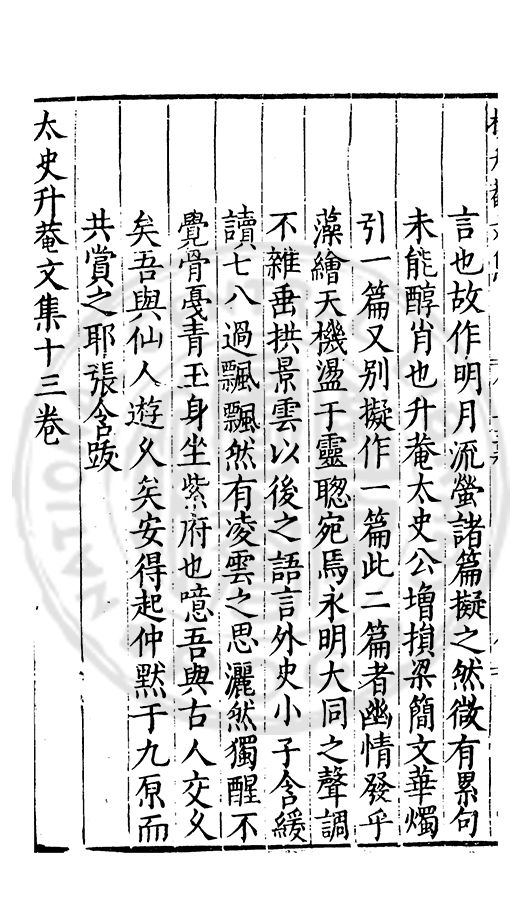 言也故作明月流螢諸篇擬之然微有累句
未能醇肖也升菴太史公増損梁簡文華燭
引一篇又别擬作一篇此二篇者幽情發乎
藻繪天機盪于靈聦宛焉永明大同之聲調
不雜垂拱景雲以後之語言外史小子含緩
讀七八過飄飄然有凌雲之思灑然獨醒不
覺骨戞青玉身坐紫府也噫吾與古人交乆
矣吾與仙人遊乆矣安得起仲黙于九原而
共賞之耶張含䟦
太史升菴文集十三卷